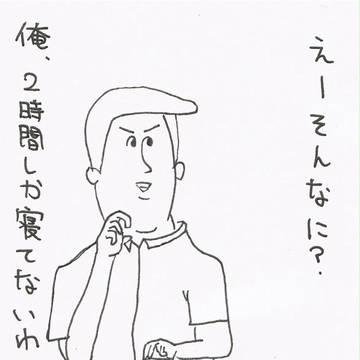 えーそんなに?
俺、2時間しか寝てないわ